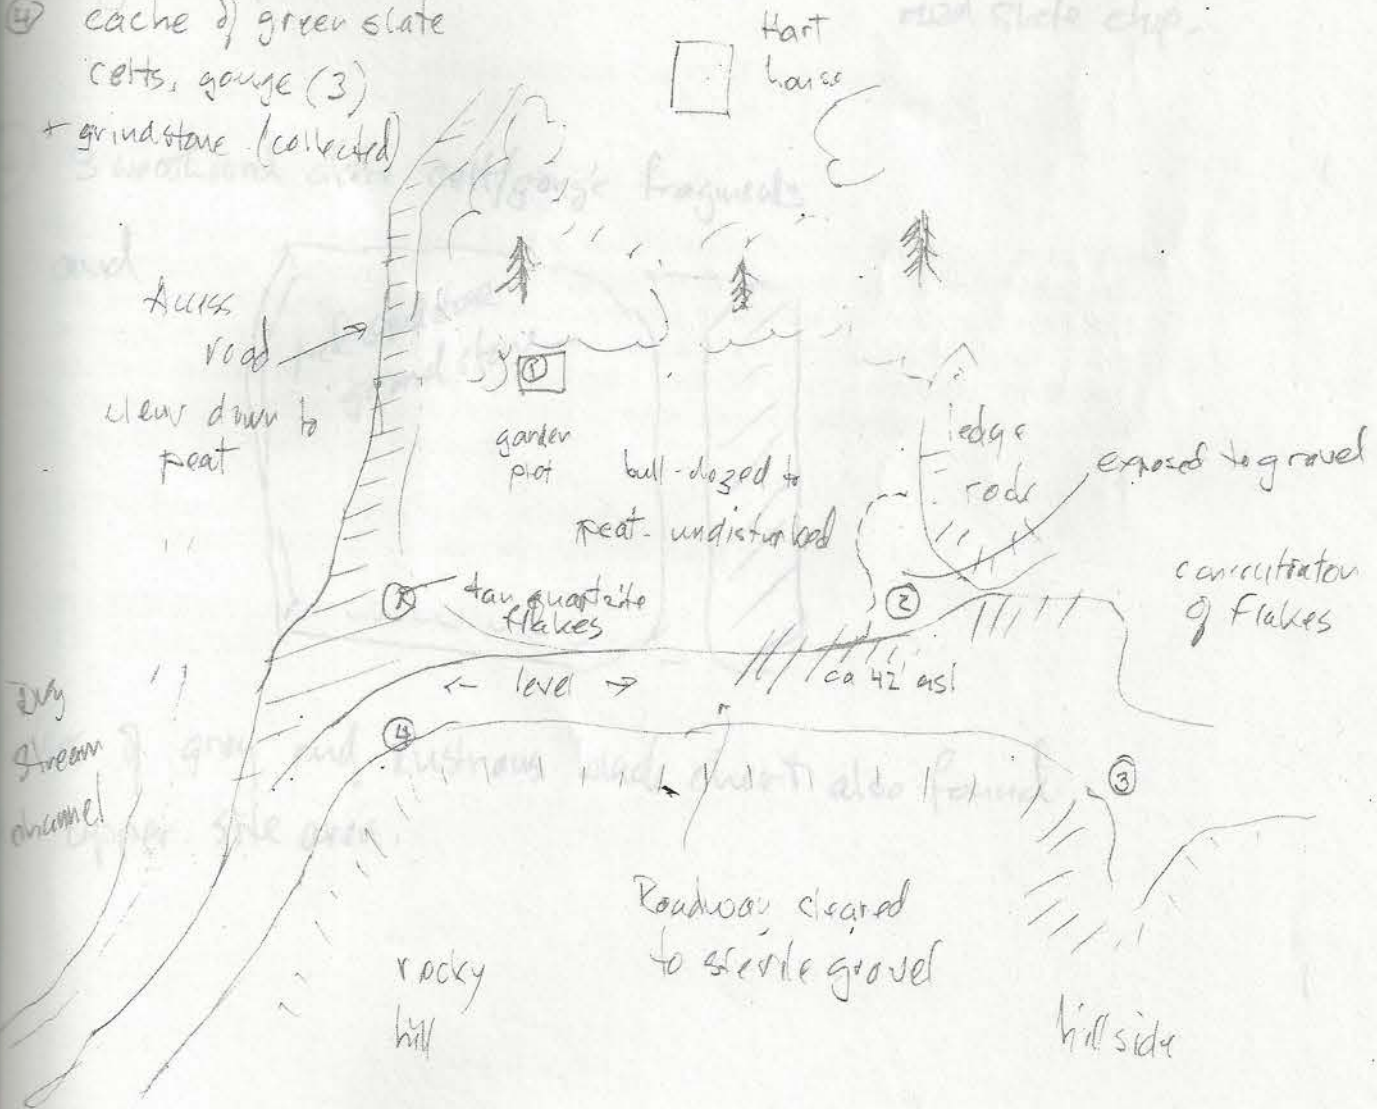 ④ cache of green slate
celts, gouge (3)
+ grindstone (collected)
Hart
house
Access
road
down to
peat
①
garden
plot
bull-dozed to
peat - undisturbed
ledge
rock
exposed to gravel
concentration
of flakes
tan quartzite
flakes
②
← level →
ca 42' asl
Dry
stream
channel
④
③
Roadway cleared
to sterile gravel
rocky
hill
hillside